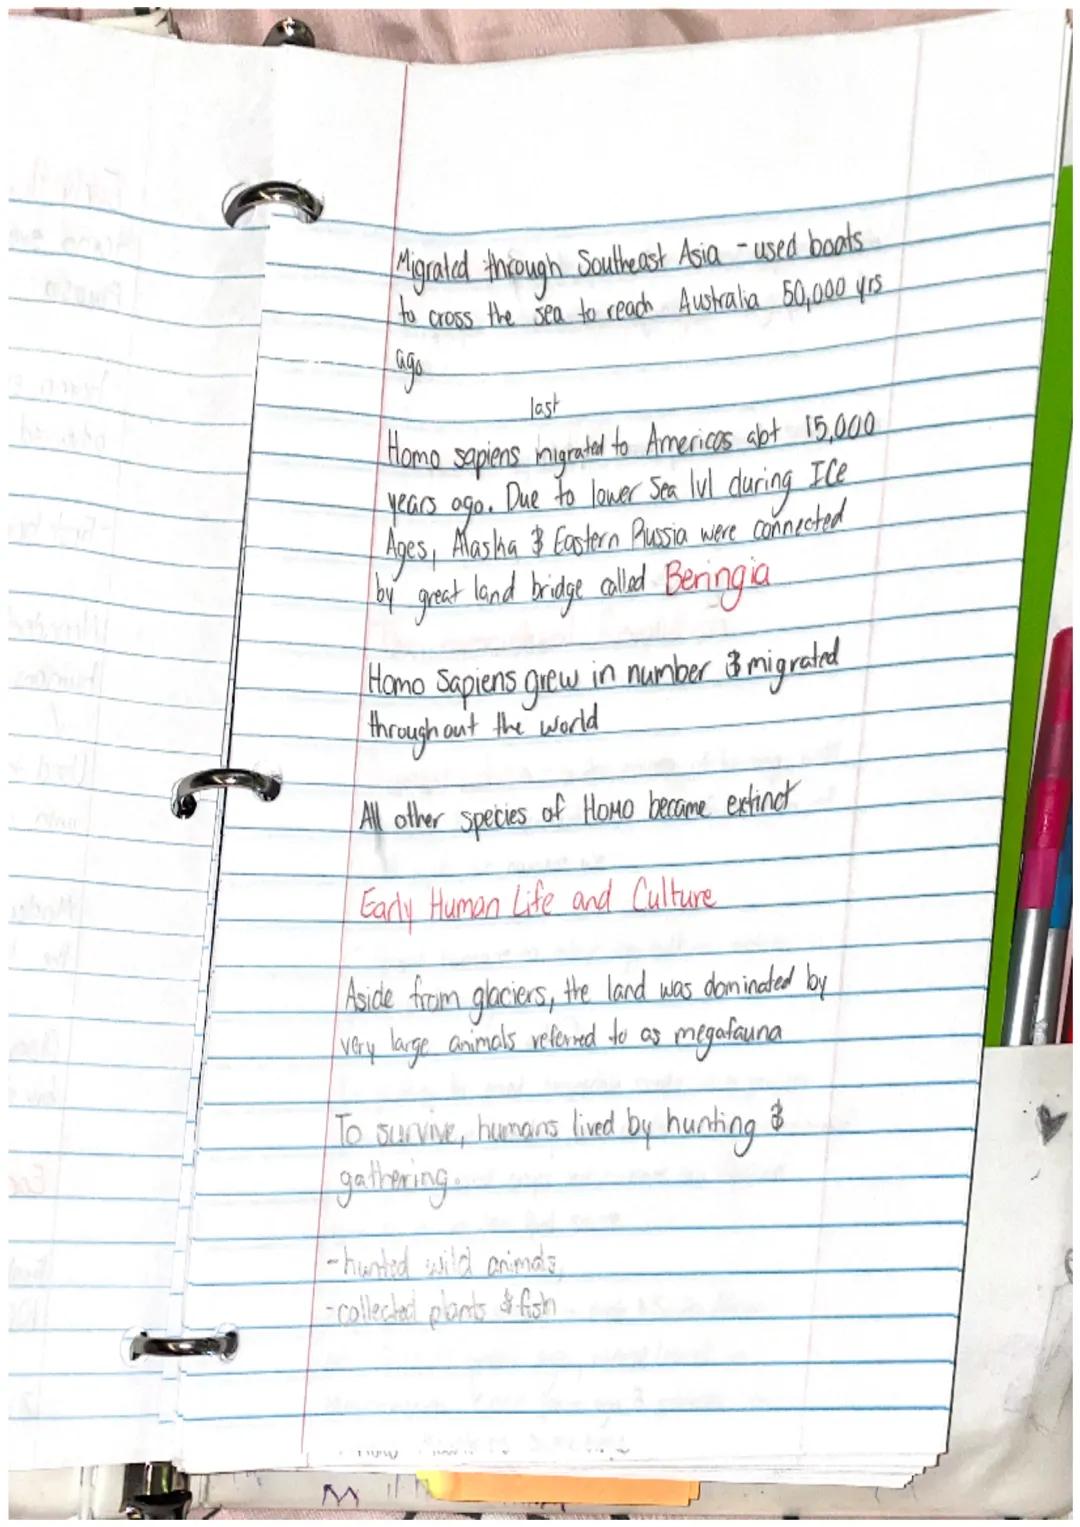 Migrated through Southeast Asia - used boats
to cross the sea to reach Australia 50,000 yrs
ago
last
Homo sapiens migrated to Americas abt 15,000
years ago. Due to lower Sea lvl during ICe
Ages, Alaska & Eastern Russia were connected
by great land bridge called Beringia
Homo Sapiens grew in number & migrated
throughout the world
All other species of HOMO became extinct
Early Human Life and Culture
Aside from glaciers, the land was dominated by
very large animals referred to as megafauna
To survive, humans lived by hunting &
gathering.
-hunted wild animals,
-collected plants & fish